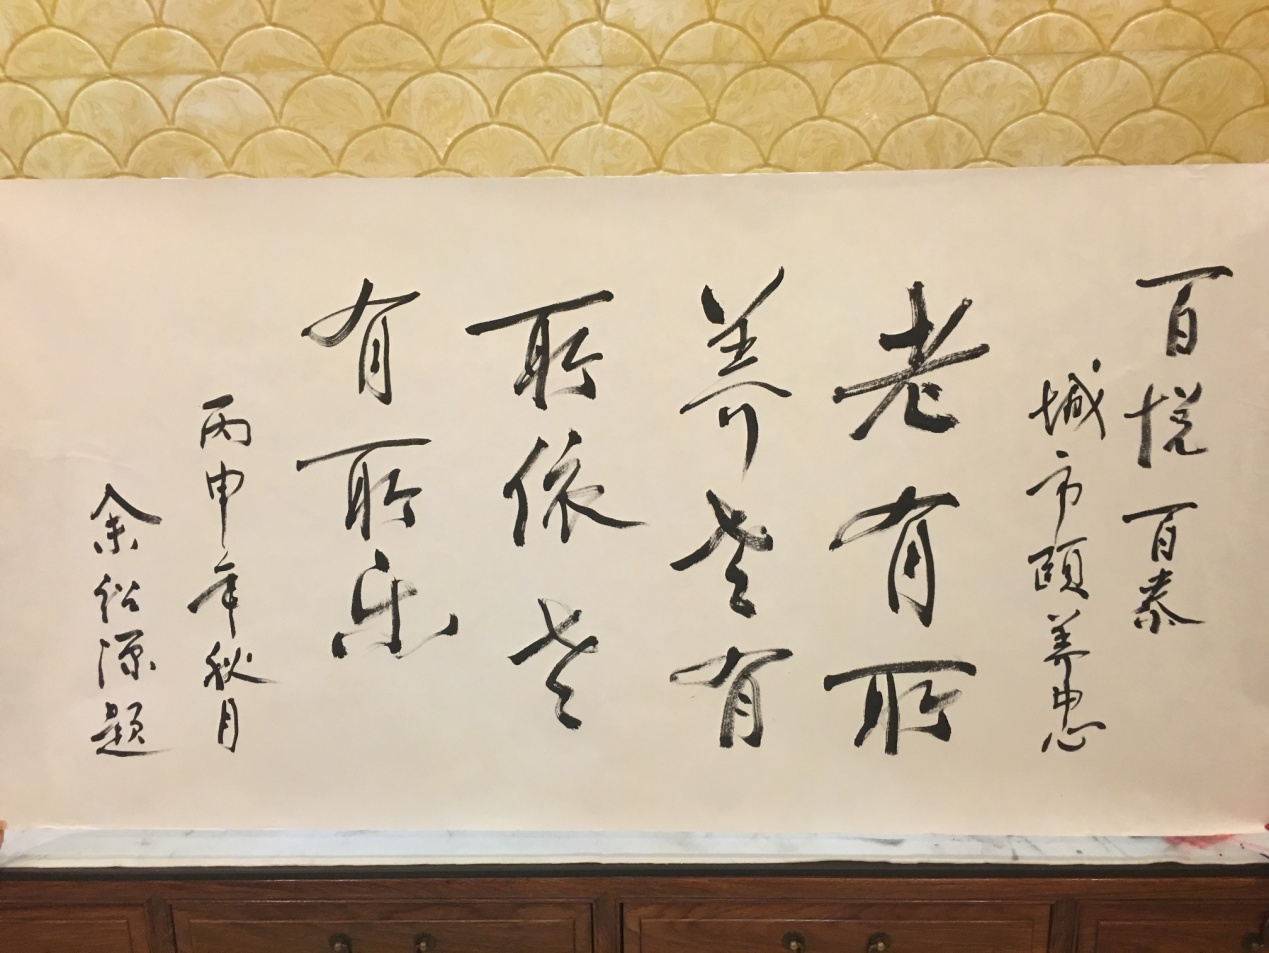 百悦百泰
城市颐养中心
老有所
养老有
所依老
有所乐
丙申年秋月
余绍源题